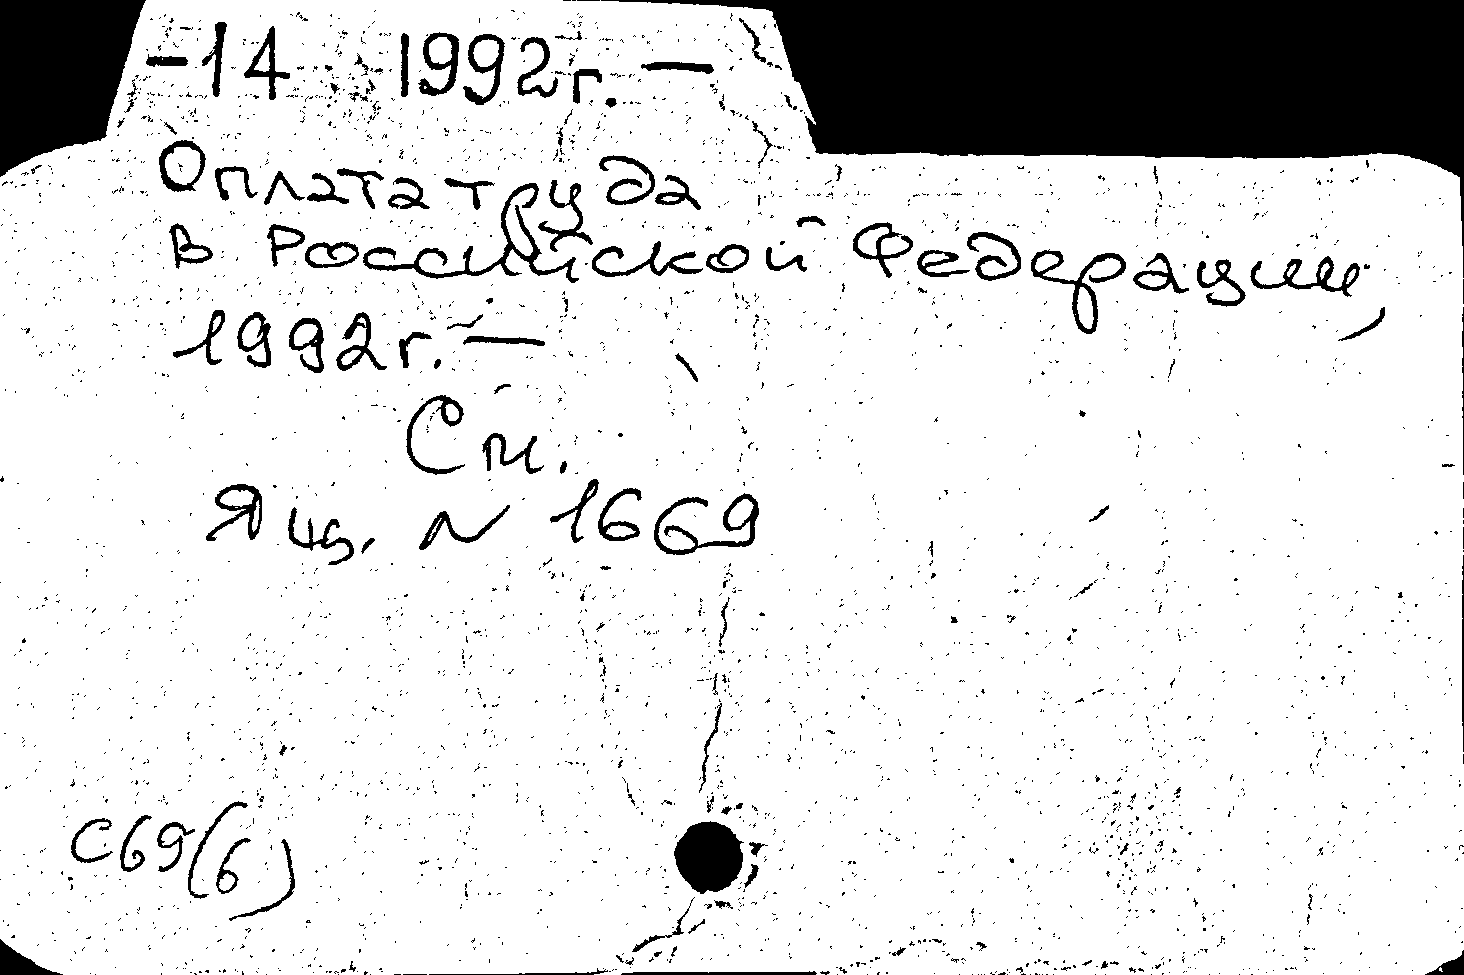 -14 1992г. —
Оплата труда
в Российской Федерации,
1992г. —
См.
Ящ. N 1669
с69(6)